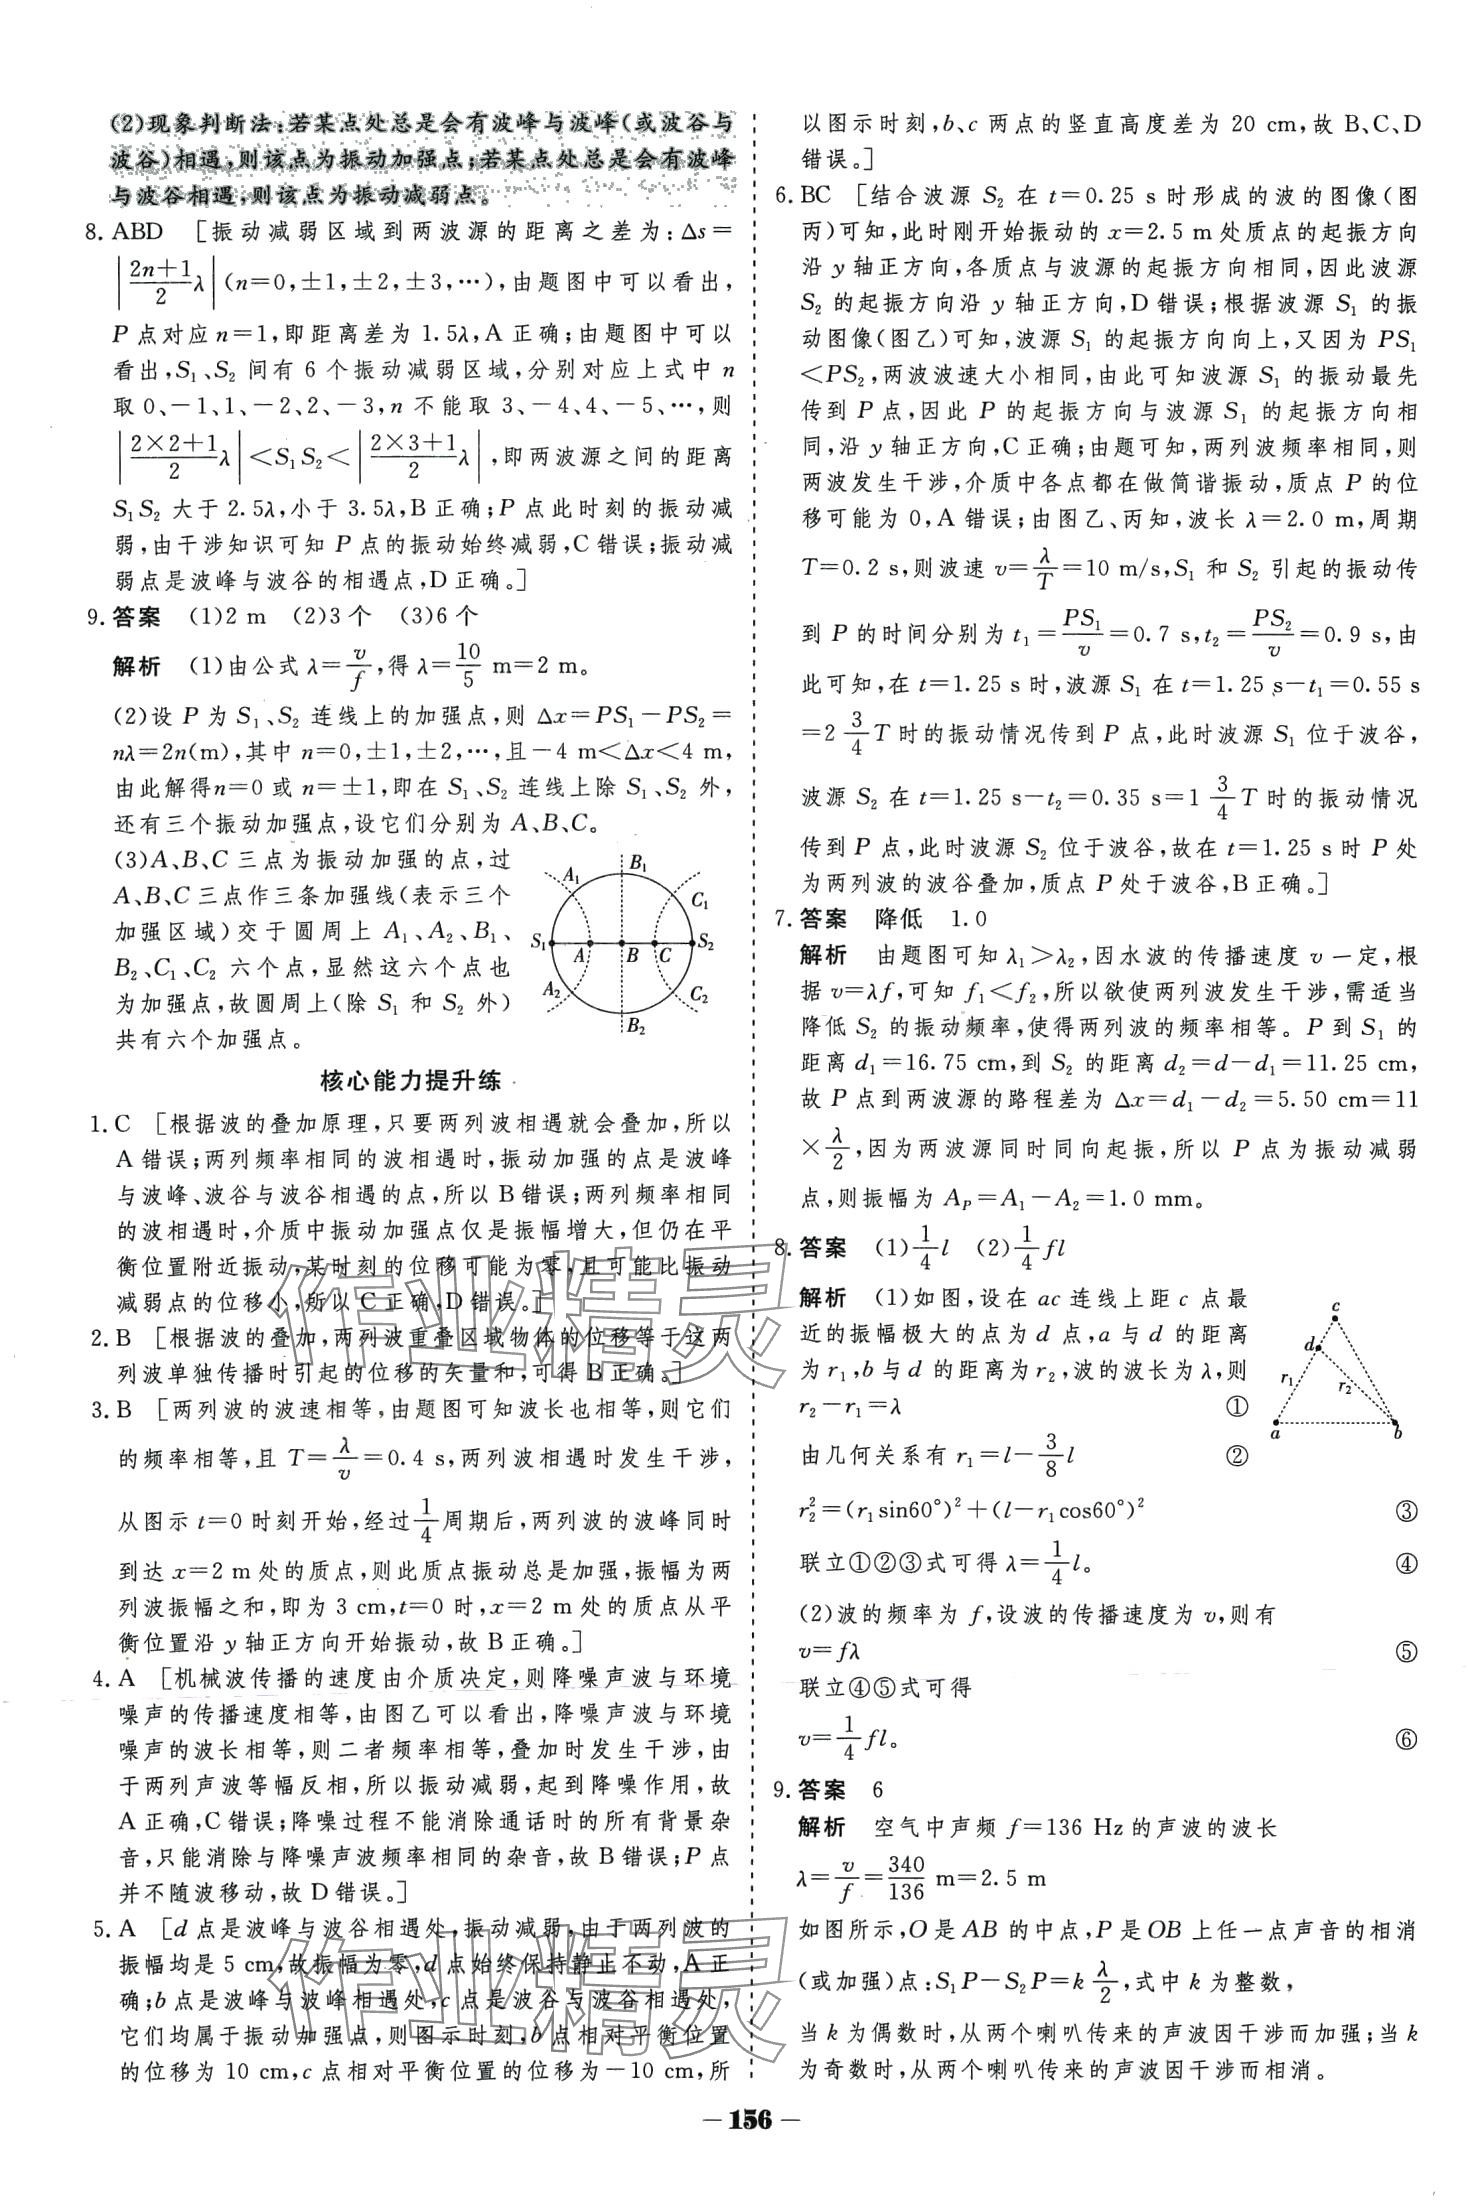 (2)现象判断法:若某点处总是会有波峰与波峰(或波谷与
波谷)相遇,则该点为振动加强点;若某点处总是会有波峰
与波谷相遇,则该点为振动减弱点。
8. ABD [振动减弱区域到两波源的距离之差为:Δs=
|(2n+1)/2 λ|(n=0,±1,±2,±3,…),由题图中可以看出,
P点对应n=1,即距离差为1.5λ,A正确;由题图中可以
看出,S₁、S₂间有6个振动减弱区域,分别对应上式中n
取0、-1、1、-2、2、-3,n不能取3、-4、4、-5、…,则
|(2×2+1)/2 λ|<S₁S₂<|(2×3+1)/2 λ|,即两波源之间的距离
S₁S₂大于2.5λ,小于3.5λ,B正确;P点此时刻的振动减
弱,由干涉知识可知P点的振动始终减弱,C错误;振动减
弱点是波峰与波谷的相遇点,D正确。]
9. 答案 (1)2 m (2)3个 (3)6个
解析 (1)由公式λ=v/f,得λ=10/5 m=2 m。
(2)设P为S₁、S₂连线上的加强点,则Δx=PS₁-PS₂=
nλ=2n(m),其中n=0,±1,±2,…,且-4 m<Δx<4 m,
由此解得n=0或n=±1,即在S₁、S₂连线上除S₁、S₂外,
还有三个振动加强点,设它们分别为A、B、C。
(3)A、B、C三点为振动加强的点,过
A、B、C三点作三条加强线(表示三个
加强区域)交于圆周上A₁、A₂、B₁、
B₂、C₁、C₂六个点,显然这六个点也
为加强点,故圆周上(除S₁和S₂外)
共有六个加强点。
A₁ B₁ C₁
S₁ A B C S₂
A₂ B₂ C₂
核心能力提升练
1. C [根据波的叠加原理,只要两列波相遇就会叠加,所以
A错误;两列频率相同的波相遇时,振动加强的点是波峰
与波峰、波谷与波谷相遇的点,所以B错误;两列频率相同
的波相遇时,介质中振动加强点仅是振幅增大,但仍在平
衡位置附近振动,某时刻的位移可能为零,且可能比振动
减弱点的位移小,所以C正确,D错误。]
2. B [根据波的叠加,两列波重叠区域物体的位移等于这两
列波单独传播时引起的位移的矢量和,可得B正确。]
3. B [两列波的波速相等,由题图可知波长也相等,则它们
的频率相等,且T=λ/v=0.4 s,两列波相遇时发生干涉,
从图示t=0时刻开始,经过1/4周期后,两列波的波峰同时
到达x=2 m处的质点,则此质点振动总是加强,振幅为两
列波振幅之和,即为3 cm,t=0时,x=2 m处的质点从平
衡位置沿y轴正方向开始振动,故B正确。]
4. A [机械波传播的速度由介质决定,则降噪声波与环境
噪声的传播速度相等,由图乙可以看出,降噪声波与环境
噪声的波长相等,则二者频率相等,叠加时发生干涉,由
于两列声波等幅反相,所以振动减弱,起到降噪作用,故
A正确,C错误;降噪过程不能消除通话时的所有背景杂
音,只能消除与降噪声波频率相同的杂音,故B错误;P点
并不随波移动,故D错误。]
5. A [d点是波峰与波谷相遇处,振动减弱,由于两列波的
振幅均是5 cm,故振幅为零,d点始终保持静止不动,A正
确;b点是波峰与波峰相遇处,c点是波谷与波谷相遇处,
它们均属于振动加强点,则图示时刻,b点相对平衡位置
的位移为10 cm,c点相对平衡位置的位移为-10 cm,所
以图示时刻,b、c两点的竖直高度差为20 cm,故B、C、D
错误。]
6. BC [结合波源S₂在t=0.25 s时形成的波的图像(图
丙)可知,此时刚开始振动的x=2.5 m处质点的起振方向
沿y轴正方向,各质点与波源的起振方向相同,因此波源
S₂的起振方向沿y轴正方向,D错误;根据波源S₁的振
动图像(图乙)可知,波源S₁的起振方向向上,又因为PS₁
<PS₂,两波波速大小相同,由此可知波源S₁的振动最先
传到P点,因此P的起振方向与波源S₁的起振方向相
同,沿y轴正方向,C正确;由题可知,两列波频率相同,则
两波发生干涉,介质中各点都在做简谐振动,质点P的位
移可能为0,A错误;由图乙、丙知,波长λ=2.0 m,周期
T=0.2 s,则波速v=λ/T=10 m/s,S₁和S₂引起的振动传
到P的时间分别为t₁=PS₁/v=0.7 s,t₂=PS₂/v=0.9 s,由
此可知,在t=1.25 s时,波源S₁在t=1.25 s-t₁=0.55 s
=2 3/4 T时的振动情况传到P点,此时波源S₁位于波谷,
波源S₂在t=1.25 s-t₂=0.35 s=1 3/4 T时的振动情况
传到P点,此时波源S₂位于波谷,故在t=1.25 s时P处
为两列波的波谷叠加,质点P处于波谷,B正确。]
7. 答案 降低 1.0
解析 由题图可知λ₁>λ₂,因水波的传播速度v一定,根
据v=λf,可知f₁<f₂,所以欲使两列波发生干涉,需适当
降低S₂的振动频率,使得两列波的频率相等。P到S₁的
距离d₁=16.75 cm,到S₂的距离d₂=d-d₁=11.25 cm,
故P点到两波源的路程差为Δx=d₁-d₂=5.50 cm=11
×λ/2,因为两波源同时同向起振,所以P点为振动减弱
点,则振幅为A_P=A₁-A₂=1.0 mm。
8. 答案 (1)1/4 l (2)1/4 fl
解析 (1)如图,设在ac连线上距c点最
近的振幅极大的点为d点,a与d的距离
为r₁,b与d的距离为r₂,波的波长为λ,则
r₂-r₁=λ ①
由几何关系有r₁=l-3/8 l ②
c
d
r₁ r₂
a b
r₂²=(r₁sin60°)²+(l-r₁cos60°)² ③
联立①②③式可得λ=1/4 l。 ④
(2)波的频率为f,设波的传播速度为v,则有
v=fλ ⑤
联立④⑤式可得
v=1/4 fl。 ⑥
9. 答案 6
解析 空气中声频f=136 Hz的声波的波长
λ=v/f=340/136 m=2.5 m
如图所示,O是AB的中点,P是OB上任一点声音的相消
(或加强)点:S₁P-S₂P=k λ/2,式中k为整数,
当k为偶数时,从两个喇叭传来的声波因干涉而加强;当k
为奇数时,从两个喇叭传来的声波因干涉而相消。
作业精灵
作业精灵
-156-